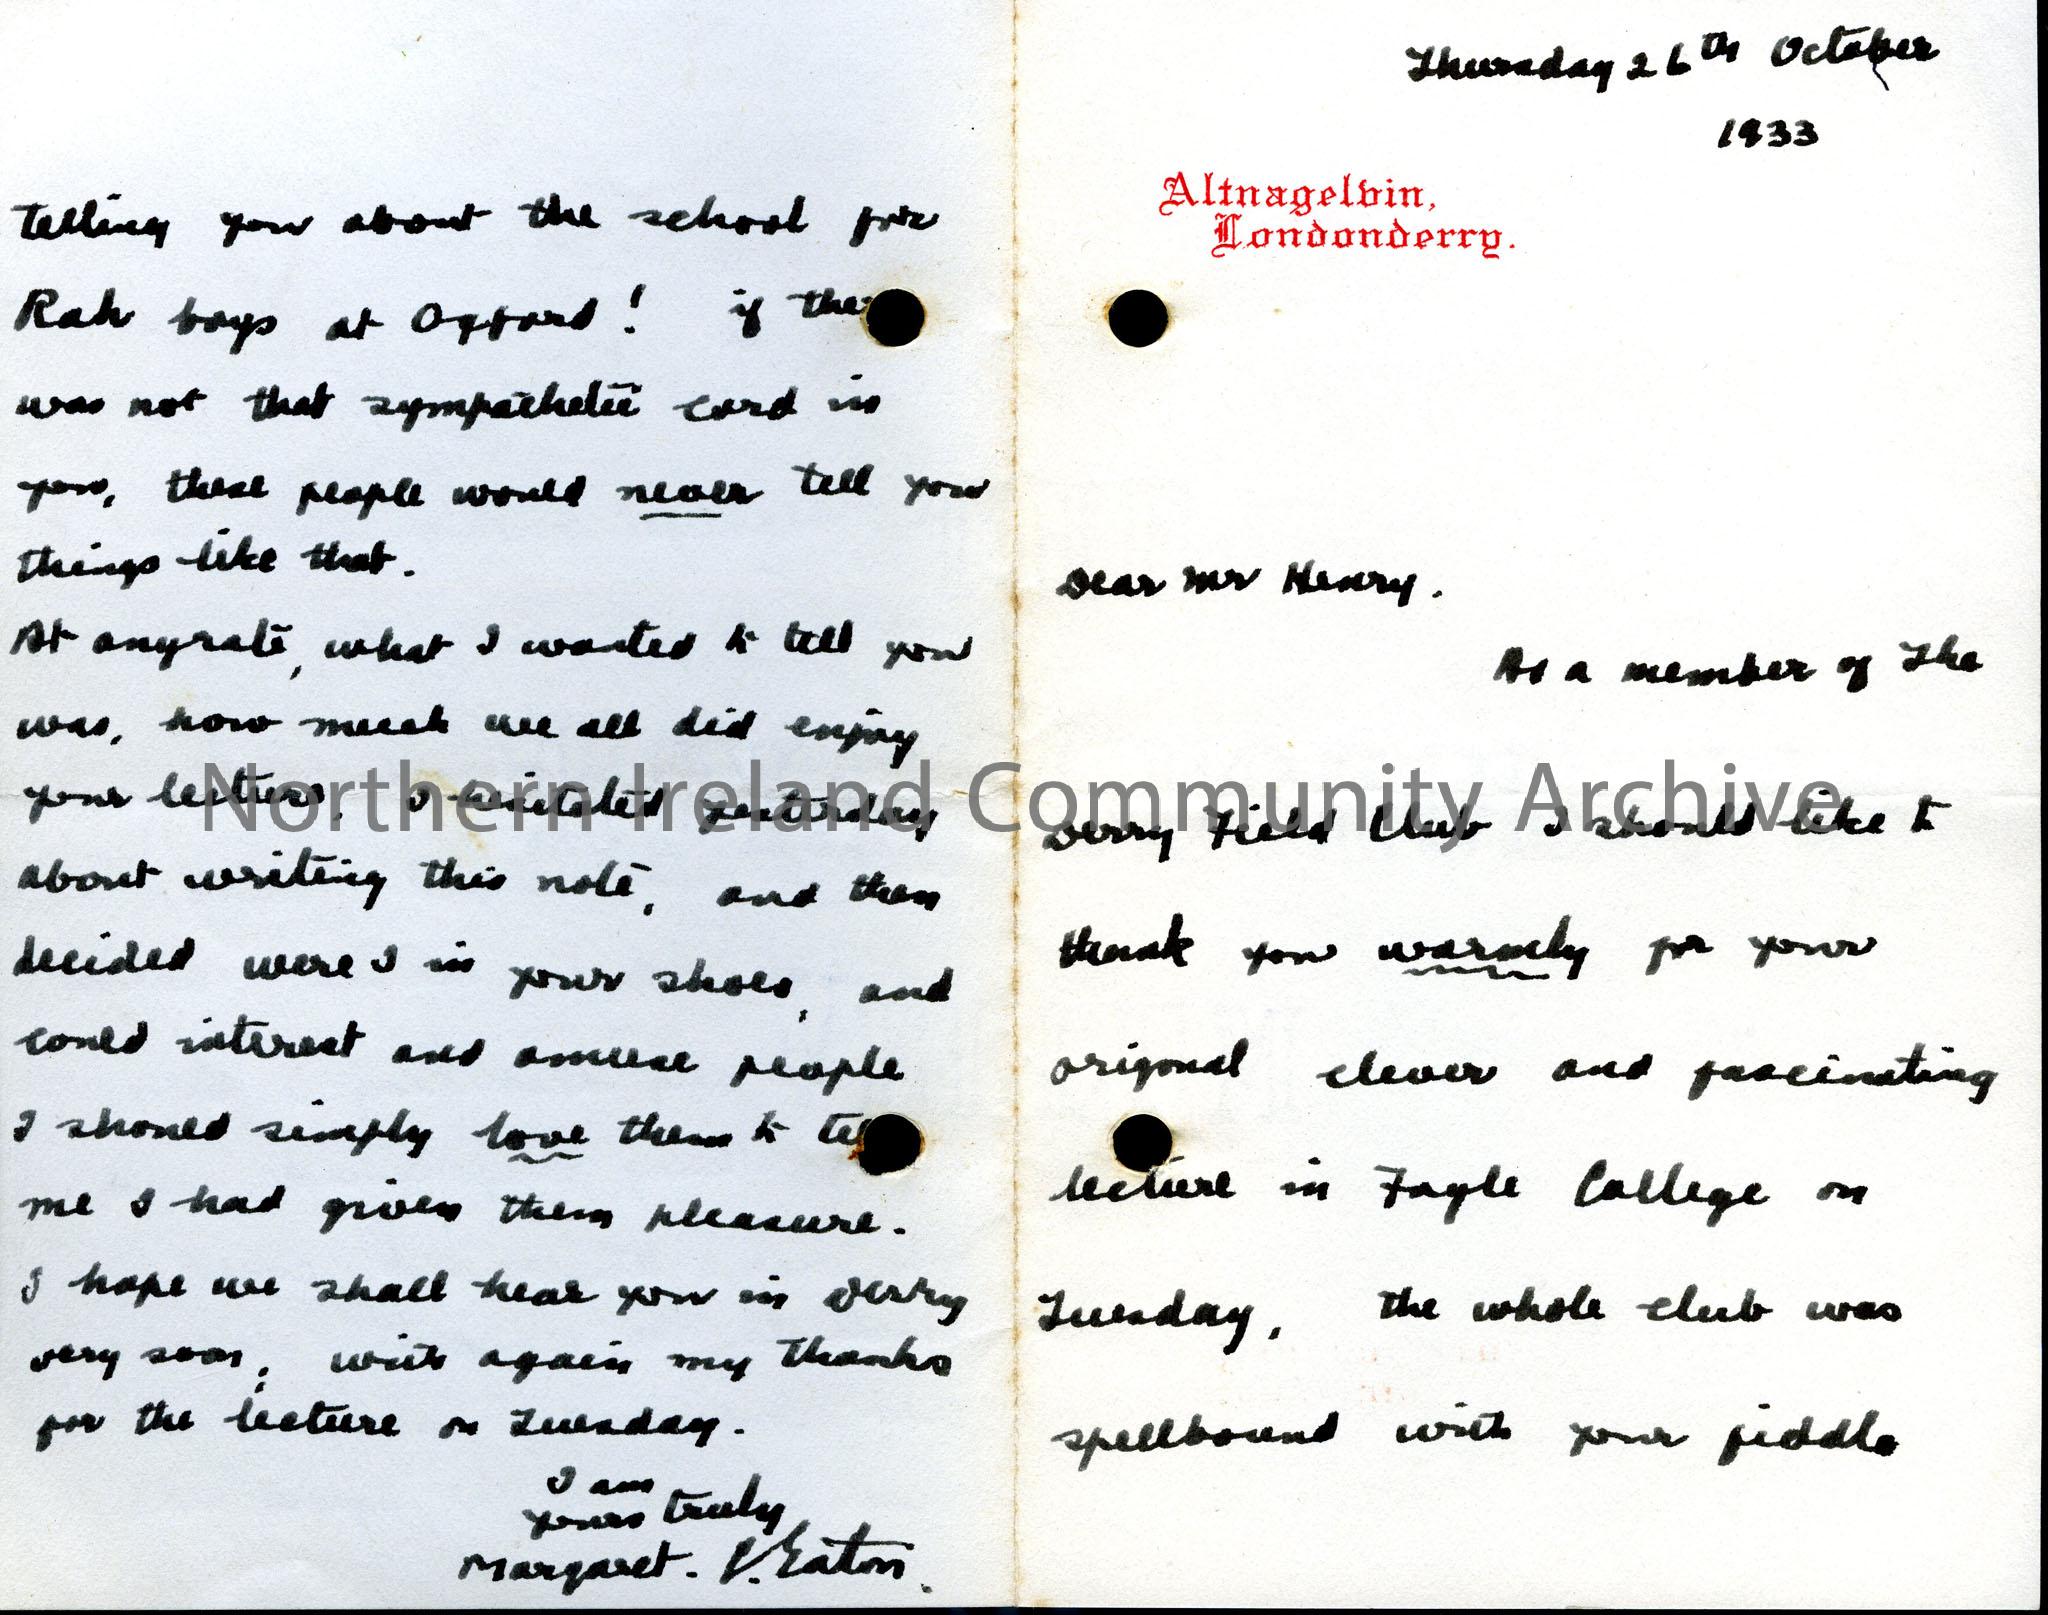 Thursday 26th October
1933
Altnagelvin,
Londonderry.
Dear Mr Henry.
As a member of The
Derry Field Club I should like to
thank you warmly for your
origonal clever and fascinating
lecture in Foyle College on
Tuesday, the whole club was
spellbound with your fiddle
telling you about the school for
Rah boys at Oxford! if the
was not that sympathetic cord in
you, these people would never tell you
things like that.
At anyrate, what I wanted to tell you
was, how much we all did enjoy
your lecture. I hesitated yesterday
about writing this note, and then
decided were I in your shoes, and
could interest and amuse people
I should simply love them to tell
me I had given them pleasure.
I hope we shall hear you in Derry
very soon, with again my thanks
for the lecture on Tuesday.
I am
yours truly
Margaret. V. Eaton.
Northern Ireland Community Archive